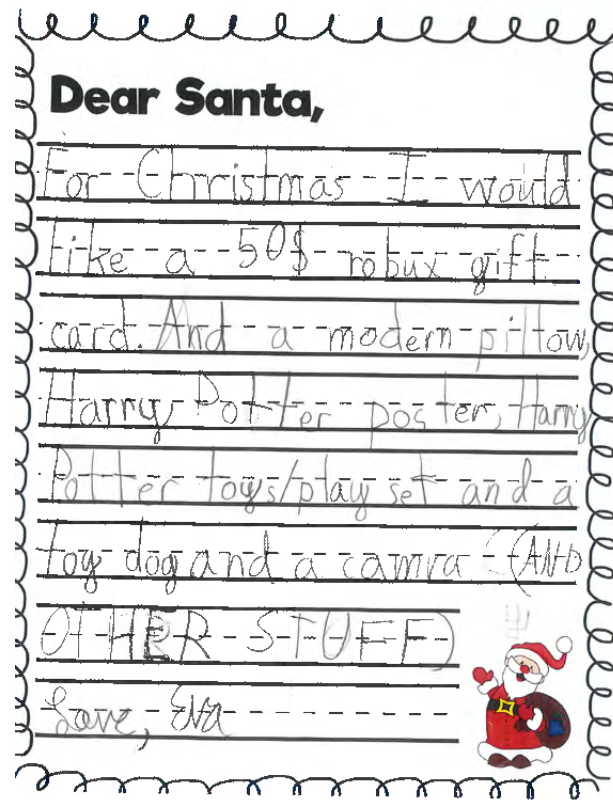 Dear Santa,
For Christmas I would
like a 50$ robux gift
card. And a modern pillow,
Harry Potter poster, Harry
Potter toys/play set and a
toy dog and a camra (AND
OTHER STUFF)
Love, Eva